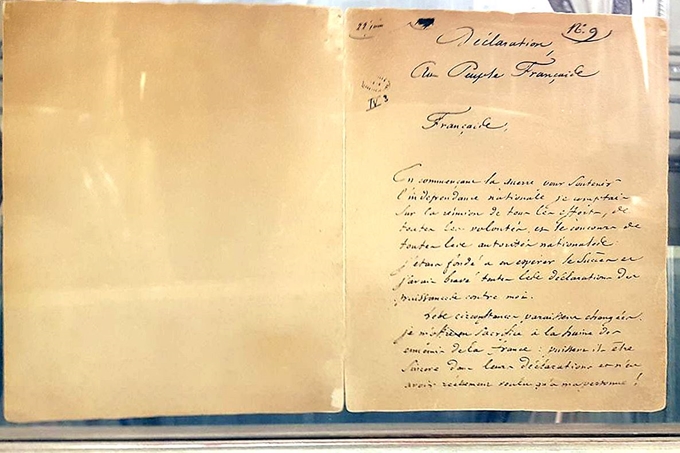 22 juin
N° 9
Déclaration,
Au Peuple Français
IV 3
Français,
En commençant la guerre pour soutenir
l'indépendance nationale je comptais
sur la réunion de tous les efforts, de
toutes les volontés, et le concours de
toutes les autorités nationales.
j'étais fondé à en espérer le succès et
j'avais bravé toutes les déclarations des
puissances contre moi.
Les circonstances paraissent changées,
je m'offre en sacrifice à la haine des
ennemis de la france : puissent ils être
sincères dans leurs déclarations et n'en
avoir réellement voulu qu'à ma personne !